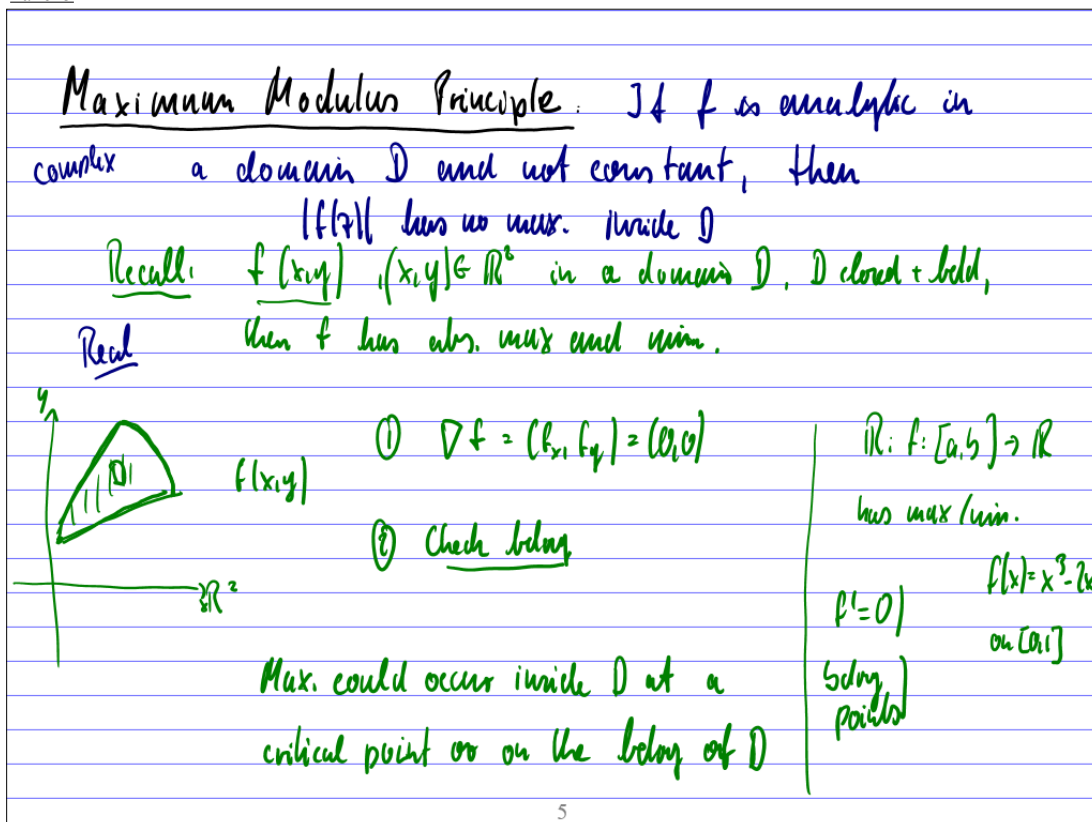 Maximum Modulus Principle. If f is analytic in
complex a domain D and not constant, then
|f(z)| has no max. inside D
Recall: f(x,y), (x,y)∈ ℝ² in a domain D, D closed + bdd,
Real then f has abs. max and min.
y
D
f(x,y)
ℝ²
① ∇f = (fx, fy) = (0,0)
② Check bdry
Max. could occur inside D at a
critical point or on the bdry of D
ℝ: f: [a,b] → ℝ
has max/min.
f(x) = x³-2x
on [0,1]
f' = 0
bdry
points
5